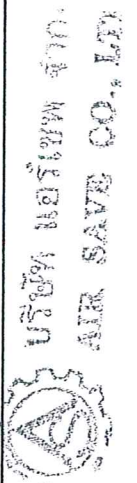 บริษัท แอร์เซฟ จำกัด
AIR SAVE CO., LTD